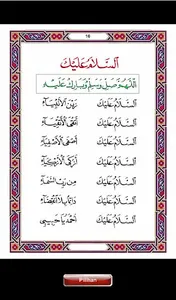 18
اَلسَّلَامُ عَلَيْكَ
اَللّٰهُمَّ صَلِّ وَسَلِّمْ وَبَارِكْ عَلَيْهِ
اَلسَّلَامُ عَلَيْكَ زَيْنَ الْأَنْبِيَاءِ
اَلسَّلَامُ عَلَيْكَ أَتْقَى الْأَتْقِيَاءِ
اَلسَّلَامُ عَلَيْكَ أَصْفَى الْأَصْفِيَاءِ
اَلسَّلَامُ عَلَيْكَ أَزْكَى الْأَزْكِيَاءِ
اَلسَّلَامُ عَلَيْكَ مِنْ رَبِّ السَّمَاءِ
اَلسَّلَامُ عَلَيْكَ دَائِمًا بِلَا انْقِضَاءِ
اَلسَّلَامُ عَلَيْكَ أَحْمَدُ يَا حَبِيبِي
Pilihan